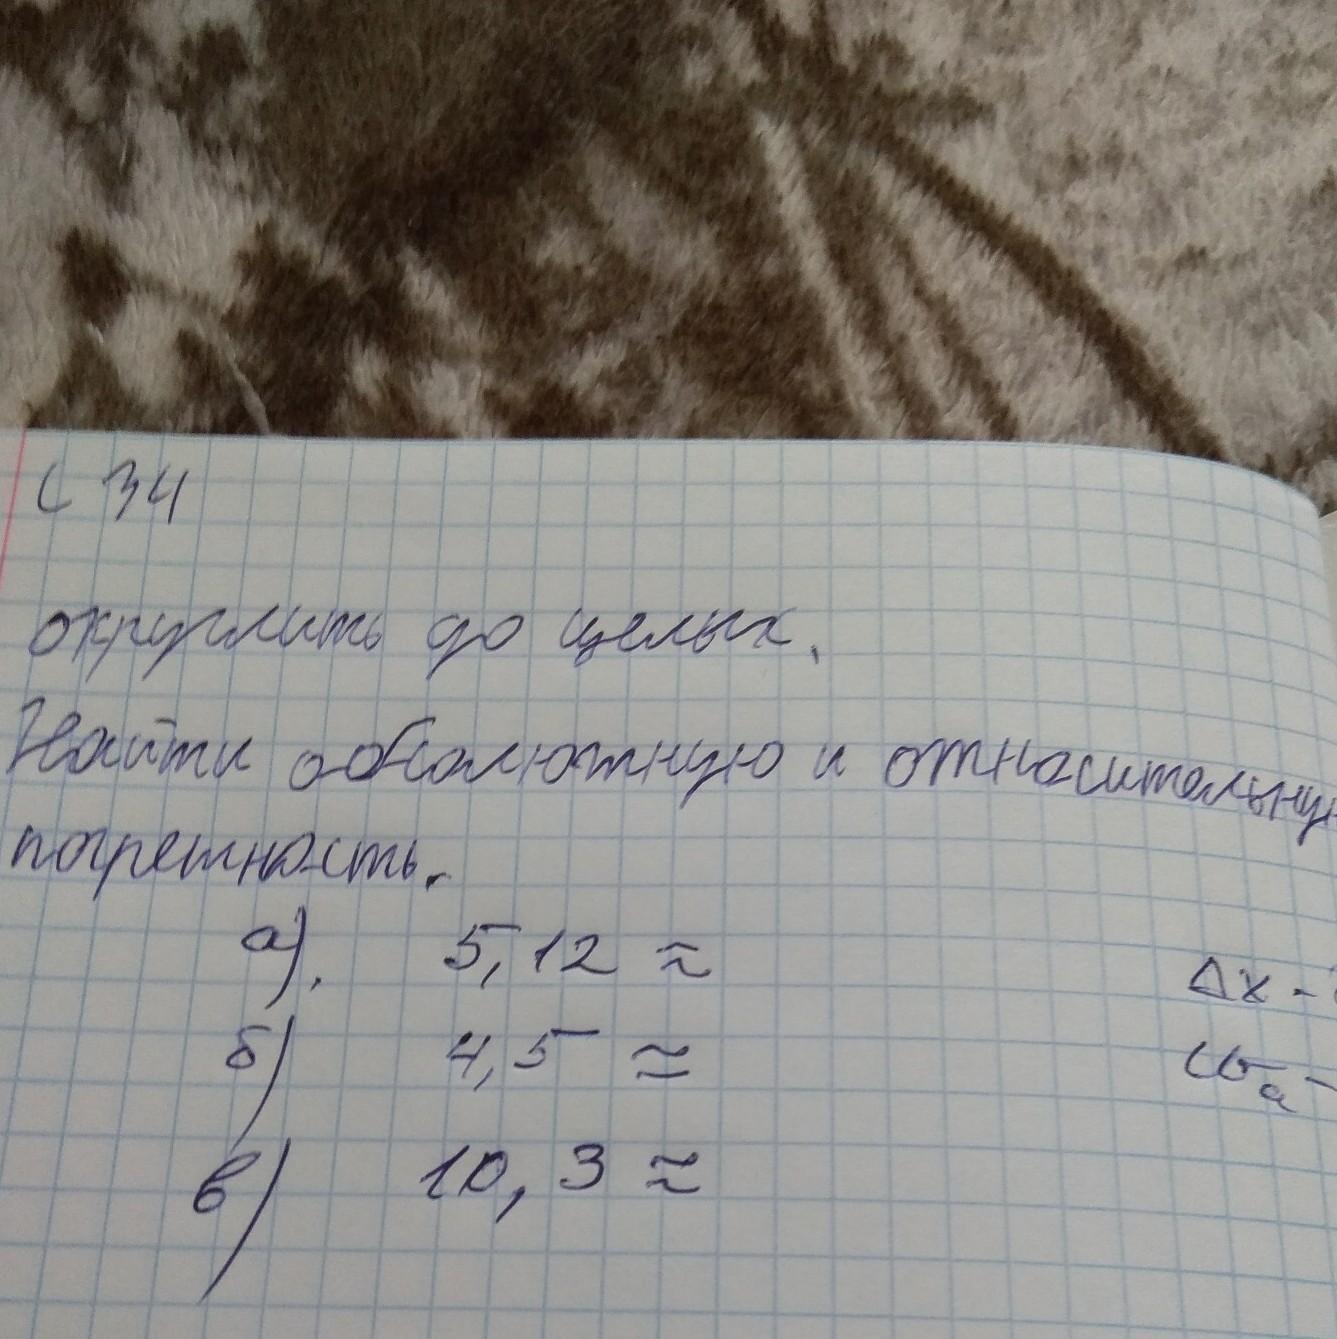 с 34
округлить до целых.
Найти абсолютную и относительную
погрешность.
а). 5,12 ≈ Δx -
б) 4,5 ≈ ω а -
в) 10,3 ≈